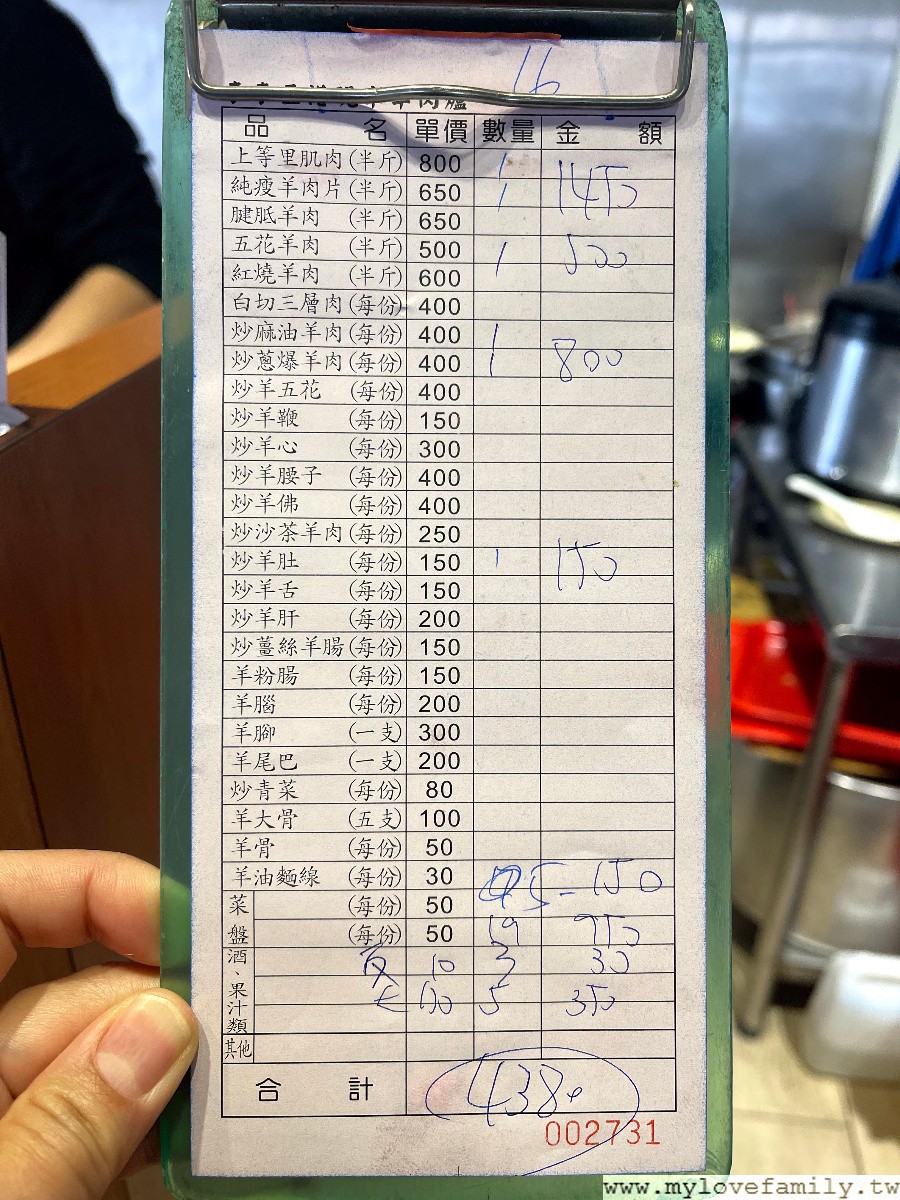 16
品 名 單價 數量 金 額
上等里肌肉(半斤) 800 1
純瘦羊肉片(半斤) 650 1 1450
腱胝羊肉 (半斤) 650
五花羊肉 (半斤) 500 1 500
紅燒羊肉 (半斤) 600
白切三層肉(每份) 400
炒麻油羊肉(每份) 400 1
炒蔥爆羊肉(每份) 400 1 800
炒羊五花 (每份) 400
炒羊鞭 (每份) 150
炒羊心 (每份) 300
炒羊腰子 (每份) 400
炒羊佛 (每份) 400
炒沙茶羊肉(每份) 250
炒羊肚 (每份) 150 1 150
炒羊舌 (每份) 150
炒羊肝 (每份) 200
炒薑絲羊腸(每份) 150
羊粉腸 (每份) 150
羊腦 (每份) 200
羊腳 (一支) 300
羊尾巴 (一支) 200
炒青菜 (每份) 80
羊大骨 (五支) 100
羊骨 (每份) 50
羊油麵線 (每份) 30 5- 150
菜盤 (每份) 50
(每份) 50 19 950
酒、果汁類 10 3 30
5 350
其他
合 計 4380
002731
www.mylovefamily.tw